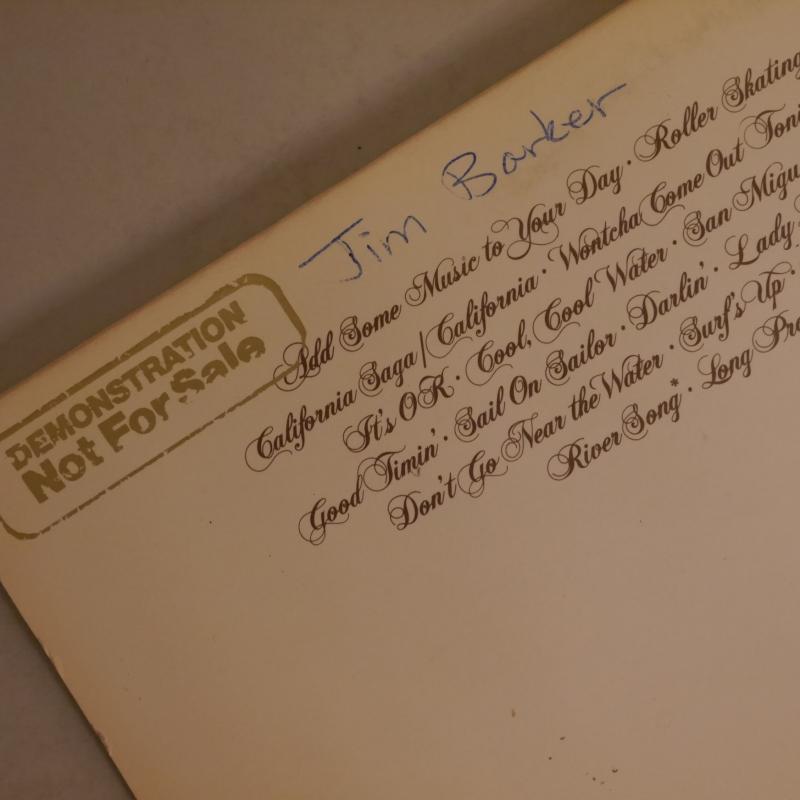 Jim Barker
DEMONSTRATION
Not For Sale
Add Some Music to Your Day · Roller Skating
California Saga/California · Wontcha Come Out Toni
It's OK · Cool, Cool Water · San Migu
Good Timin' · Sail On Sailor · Darlin' · Lady
Don't Go Near the Water · Surf's Up ·
River Song* · Long Pro